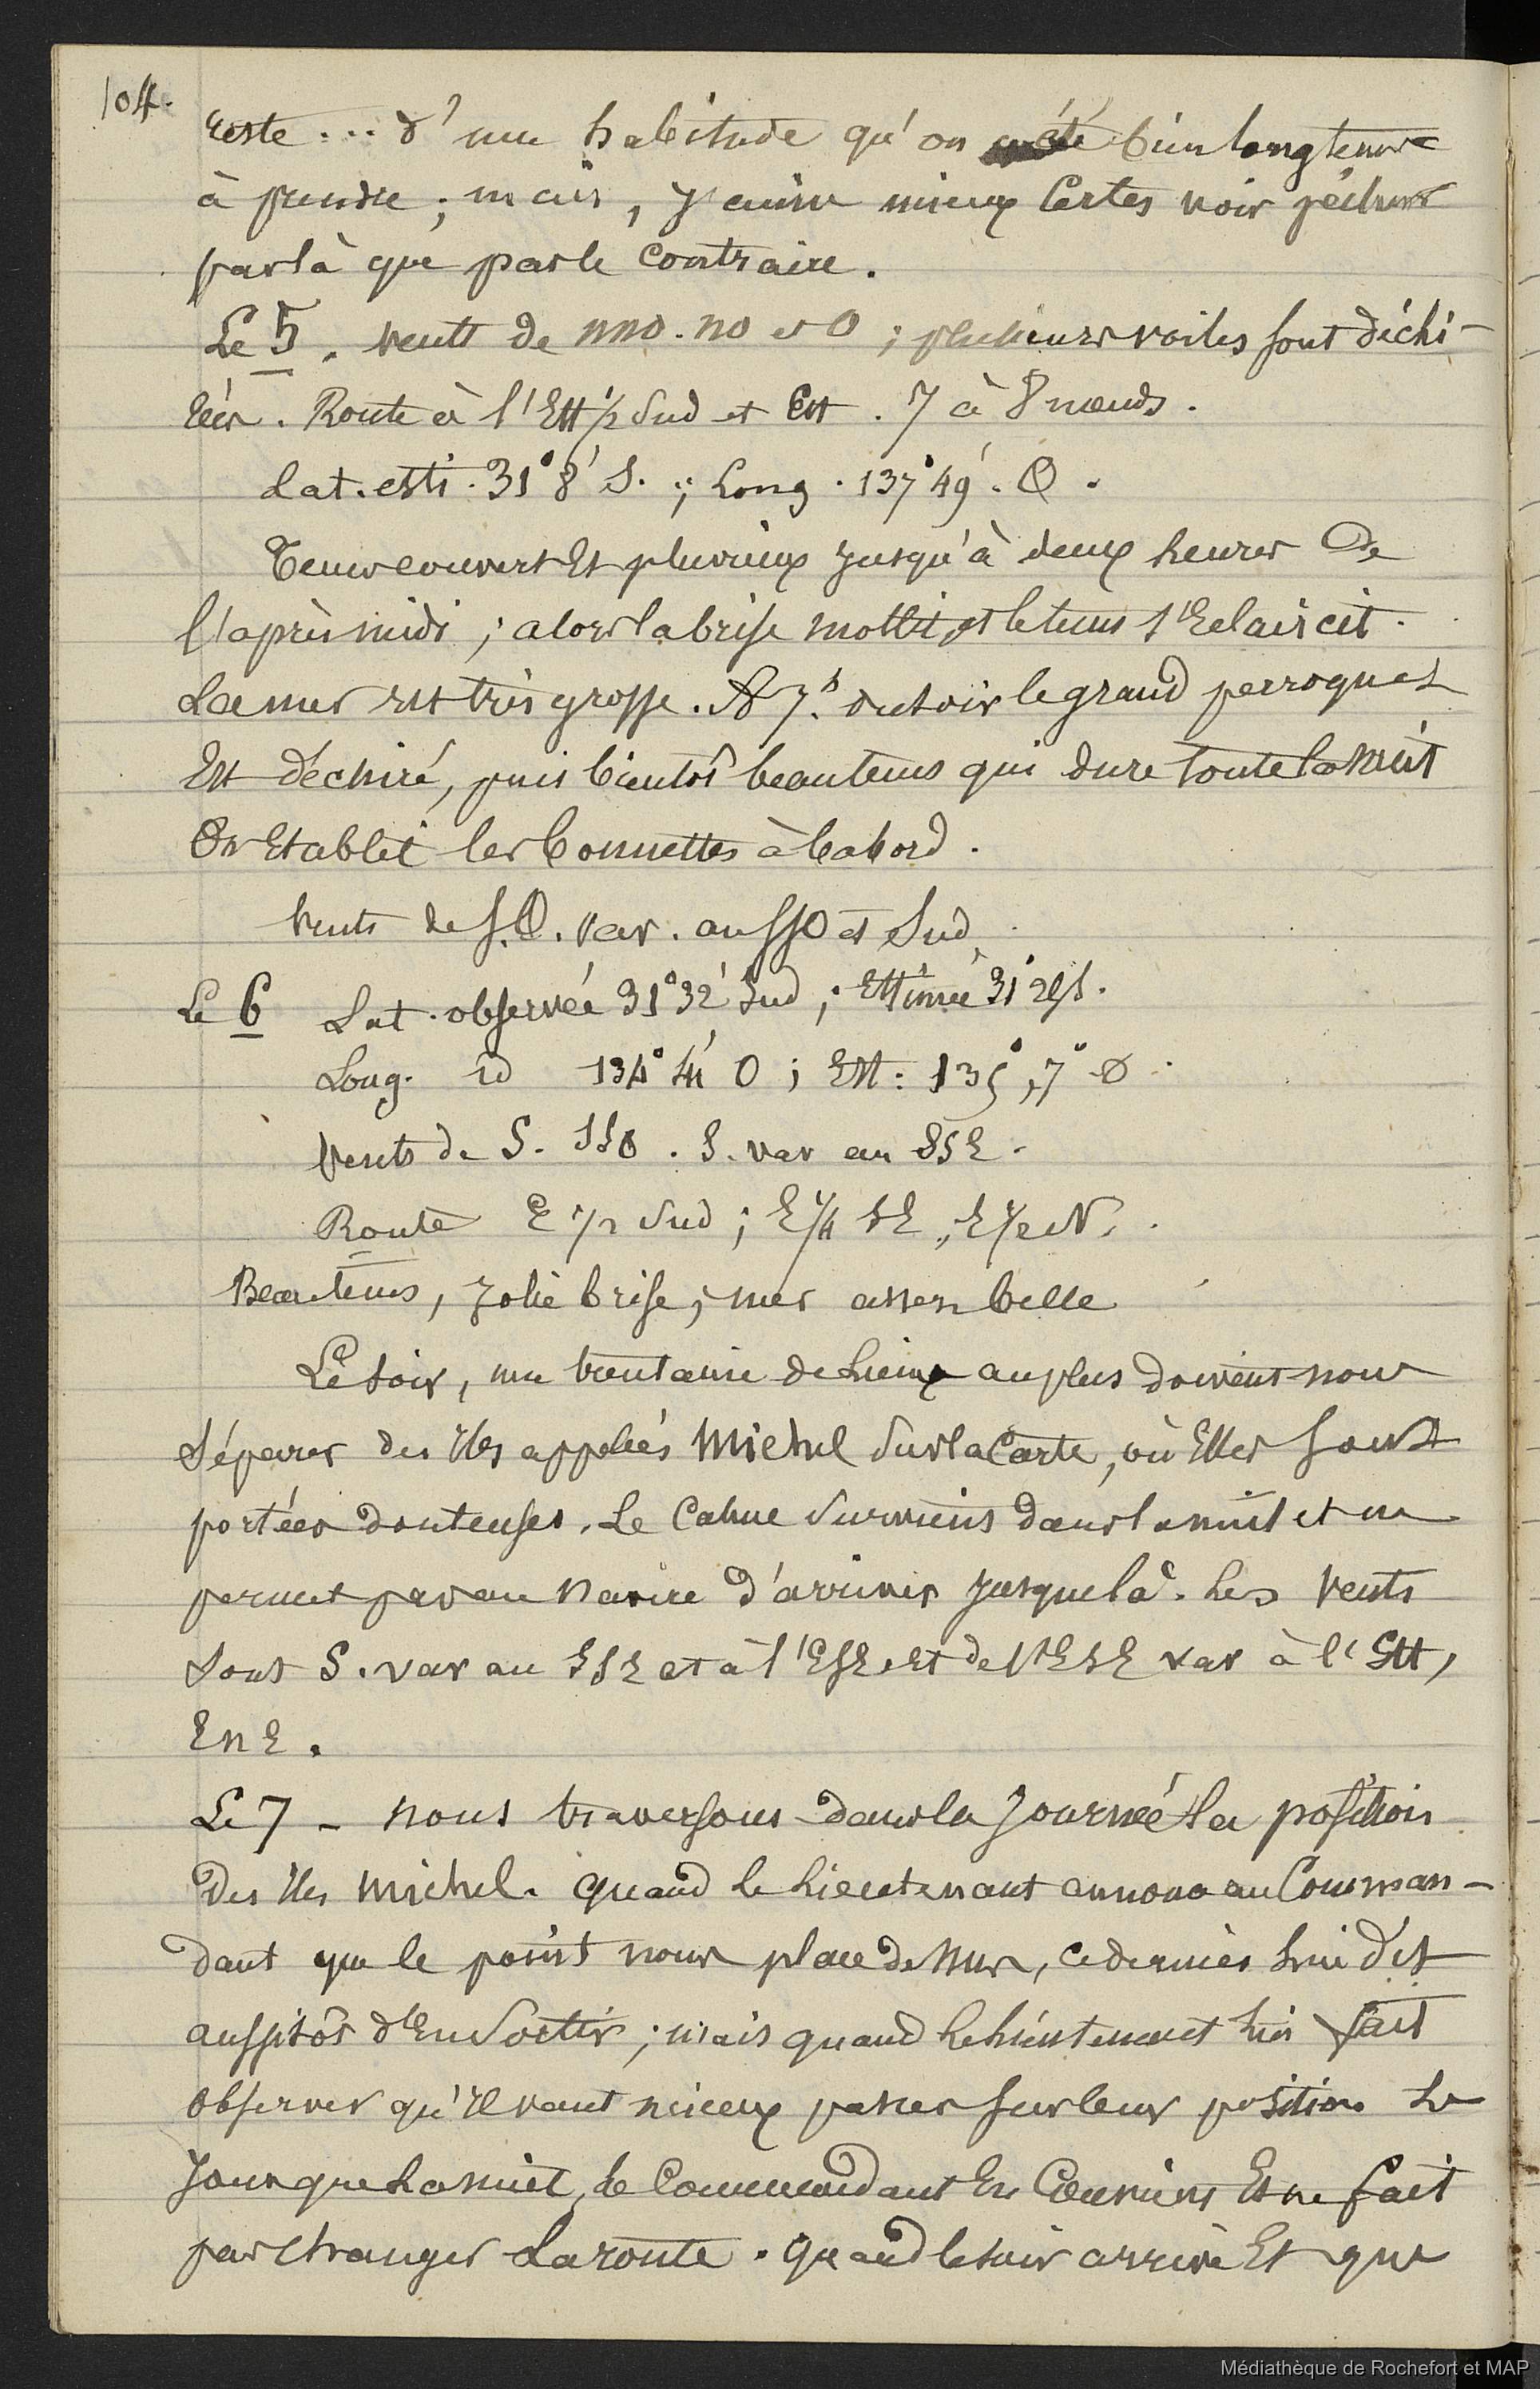 104.
reste... d'une habitude qu'on a été bien longtems
à prendre; mais, j'aime mieux certes voir pécher
par là que par le contraire.
Le 5. vents de nno. no et O; plusieurs voiles sont déchi-
rées. Route à l'Est 1/2 Sud et Est. 7 à 8 nœuds.
Lat. esti. 31° 8' S.; Long. 137° 49'. O.
Tems couvert Et pluvieux jusqu'à deux heures De
l'après midi; alors la brise mollit et le tems s'Eclaircit.
La mer est très grosse. A 7h. du soir le grand perroquet
Est déchiré, puis bientôt beau tems qui dure toute la nuit
On Etablit les bonnettes à babord.
Vents de S.O. var. au SSO et Sud
Le 6 Lat. observée 31° 32' Sud; Estimée 31° 28' S.
Long. id 134° 41' O; Est: 135°, 7' O.
Vents de S. SSO. S. var au SSE.
Route E 1/2 Sud; E 1/4 SE, E 1/2 N.
Beau tems, jolie brise; mer assez belle
Le soir, une trentaine de Lieux au plus doivent nous
Séparer des îles appelées Michel Sur la Carte, où Elles sont
portées douteuses. Le Calme Survient dans la nuit et ne
permet pas au Navire d'arriver jusque là. Les Vents
Sont S. var au SSE et à l'ESE et de l'ESE var à l'Est,
EnE.
Le 7 - Nous traversons dans la Journée la position
Des îles Michel. Quand le Lieutenant annonce au Comman-
dant que le point nous place dessus, ce dernier lui dit
aussitôt d'En Sortir; mais quand le Lieutenant lui fait
Observer qu'il vaut mieux passer sur leur position Le
Jour que La nuit, le Commandant En Convient Et ne fait
pas changer La route. Quand le soir arrive Et que
Médiathèque de Rochefort et MAP